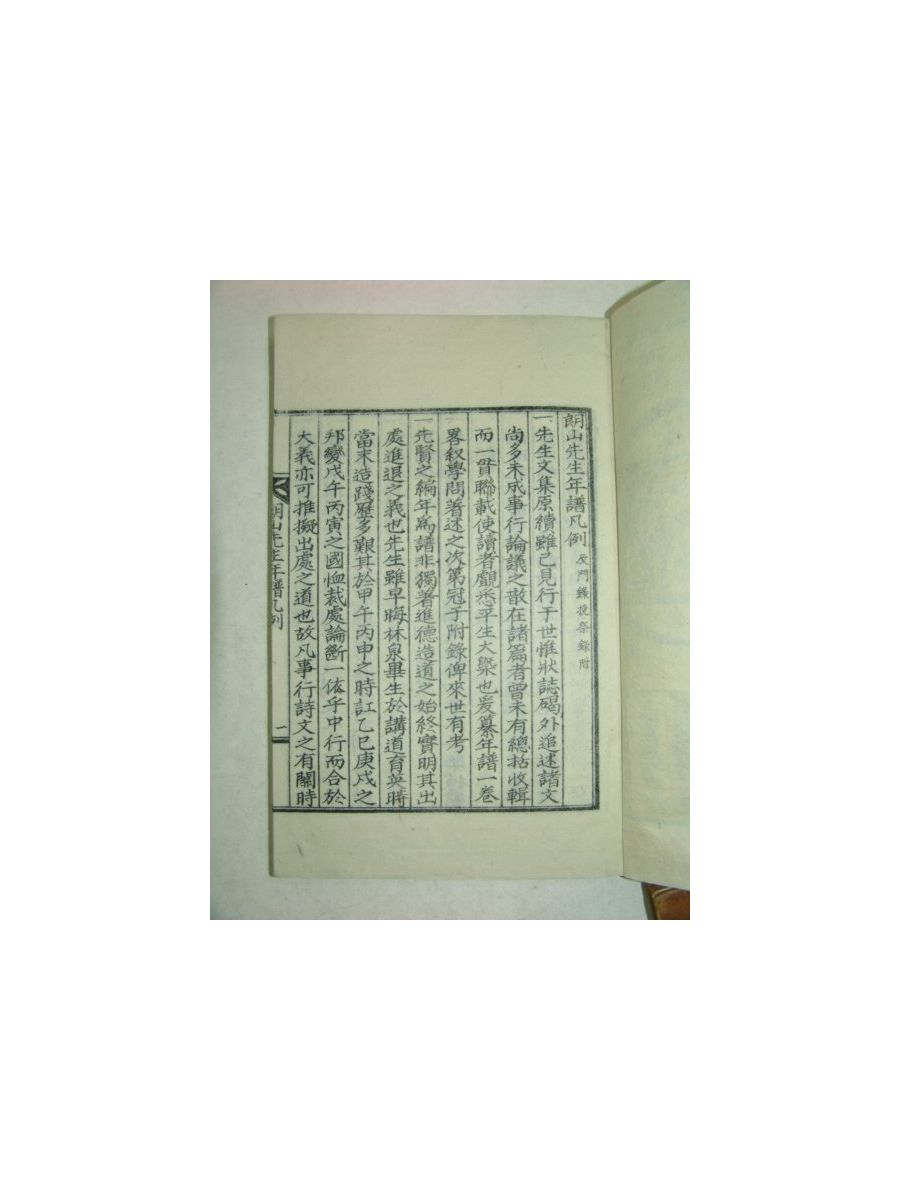 朗山先生年譜凡例 及門錄挽祭錄附
一先生文集原續雖已見行于世惟狀誌碣外追述諸文
尙多未成事行論議之散在諸篇者曾未有總括收輯
而一貫聯載使讀者觀悉平生大槩也爰纂年譜一卷
畧叙學問著述之次第冠于附錄俾來世有考
一先賢之編年爲譜非獨著進德造道之始終實明其出
處進退之義也先生雖早晦林泉畢生於講道育英時
當末造踐歷多艱其於甲午丙申之時訌乙巳庚戌之
邦變戊午丙寅之國恤裁處論斷一依乎中行而合於
大義亦可推擬出處之道也故凡事行詩文之有關時
朗山先生年譜凡例
一